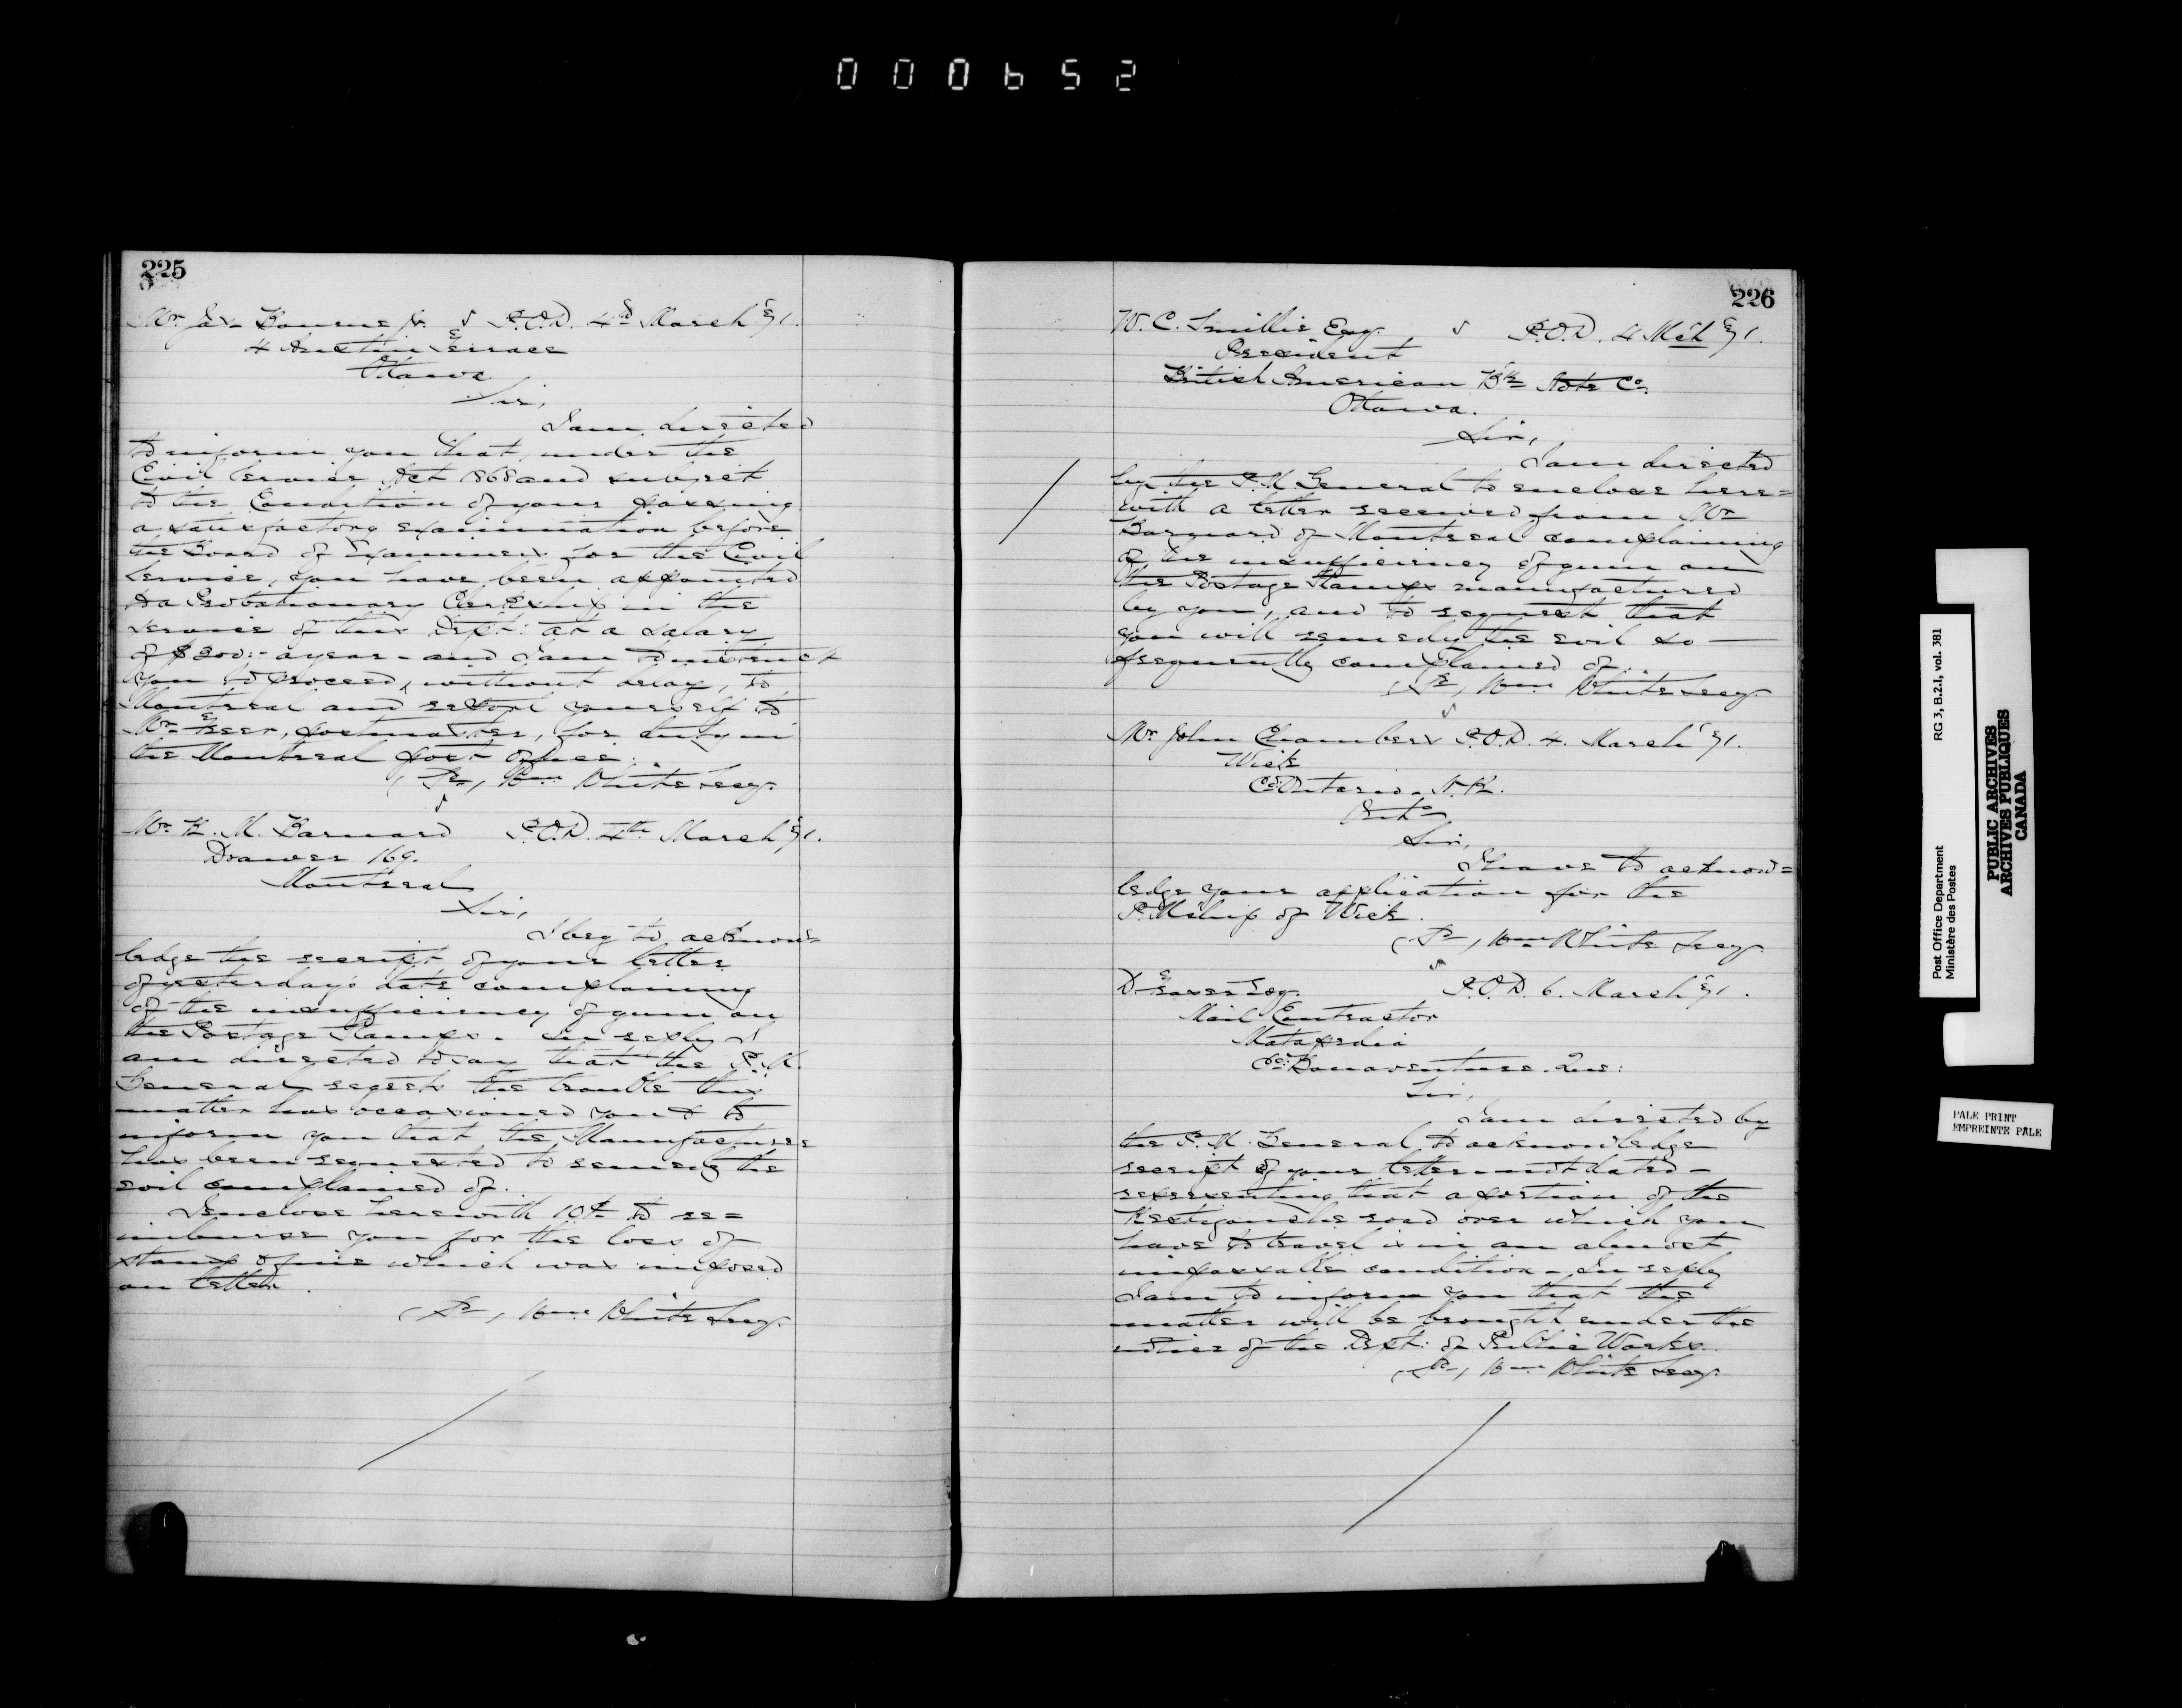 000652
225
Mr. Jas. Bourne Jr. P.O.D. 4th March '71.
4 Austin Terrace
Ottawa
Sir,
I am directed
to inform you that, under the
Civil Service Act 1868 and subject
to the Condition of your passing
a satisfactory examination before
the Board of Examiners for the Civil
Service, you have been appointed
to a Probationary Clerkship in the
service of this Dept: at a salary
of $300:- a year - and I am to instruct
you to proceed, without delay, to
Montreal and report yourself to
Mr. Freer, postmaster, for duty in
the Montreal post office.
Wm White Secy.
Mr. M. Barnard P.O.D. 4th March '71.
Drawer 169.
Montreal
Sir,
I beg to acknow=
ledge the receipt of your letter
of yesterday's date complaining
of the insufficiency of gum on
the Postage Stamps. In reply I
am directed to say that the P.M.
General regrets the trouble this
matter has occasioned you & to
inform you that the Manufacturers
has been requested to remedy the
evil complained of.
I enclose herewith 10 to re=
imburse you for the loss of
stamp & fine which was imposed
on letter.
Wm White Secy.
226
W. C. Smillie Esq. P.O.D. 4 Mch '71.
President
British American Bk Note Co.
Ottawa.
Sir,
I am directed
by the P.M. General to enclose here=
with a letter received from Mr
Barnard of Montreal complaining
of the insufficiency of gum on
the Postage Stamps manufactured
by you, and to request that
you will remedy the evil so
frequently complained of.
Wm White Secy.
Mr John Chambers P.O.D. 4. March '71.
Wick
Co. Ontario. N.R.
Onto
Sir,
I have to acknow=
ledge your application for the
P.Mship of Wick.
Wm White Secy.
D. Fraser Esq. P.O.D. 6. March '71.
Mail Contractor
Matapedia
Co: Bonaventure. Que:
Sir,
I am directed by
the P.M. General to acknowledge
receipt of your letter - not dated -
representing that a portion of the
Restigouche road over which you
have to travel is in an almost
impassable condition - In reply
I am to inform you that the
matter will be brought under the
notice of the Dept: of Public Works.
Wm White Secy.
Post Office Department RG 3, B.2.1, vol. 381
Ministère des Postes
PUBLIC ARCHIVES
ARCHIVES PUBLIQUES
CANADA
PALE PRINT
EMPREINTE PALE